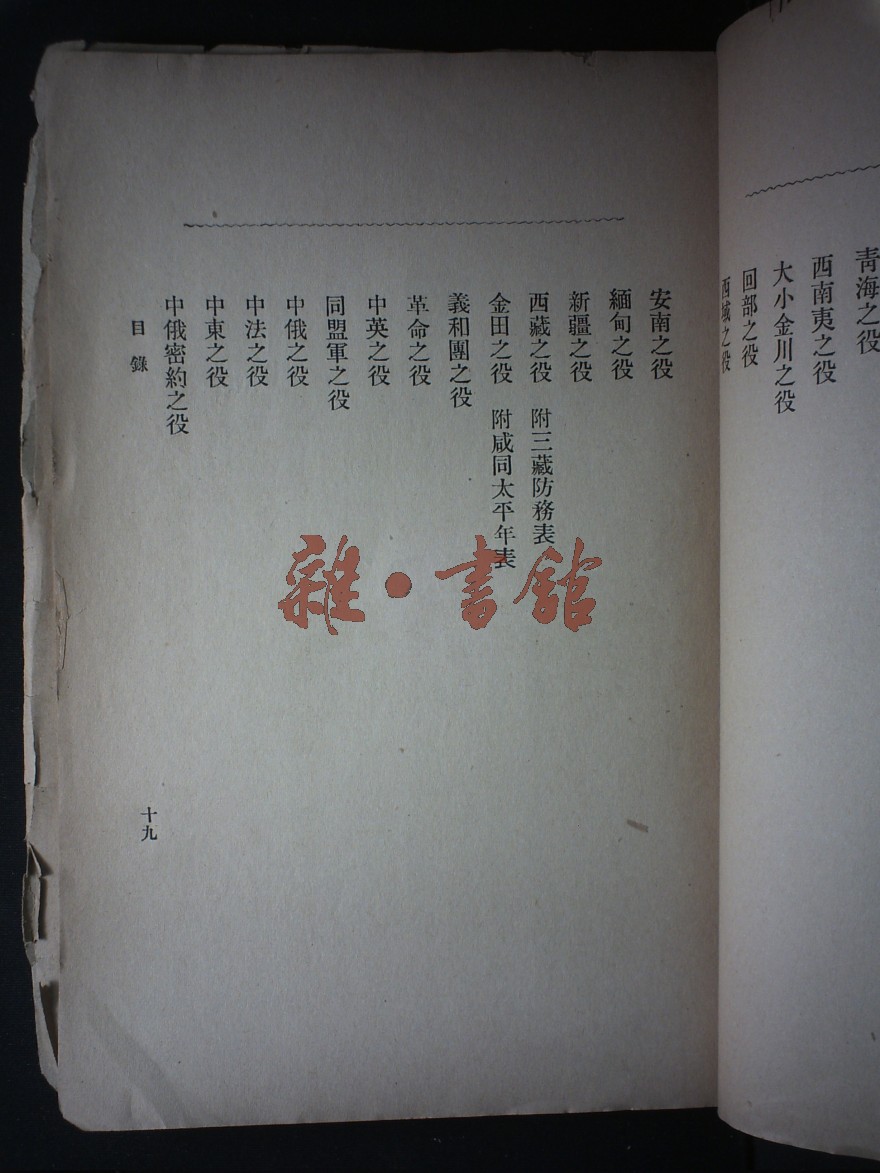 青海之役
西南夷之役
大小金川之役
回部之役
西域之役
安南之役
緬甸之役
新疆之役
西藏之役 附三藏防務表
金田之役 附咸同太平年表
義和團之役
革命之役
中英之役
同盟軍之役
中俄之役
中法之役
中東之役
中俄密約之役
目錄
十九
雜·書館